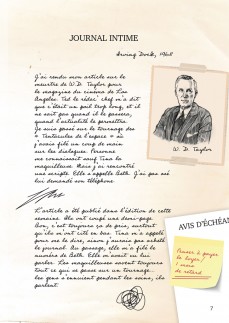 JOURNAL INTIME
J'ai rendu mon article sur le
meurtre de W.D. Taylor pour
le magazine du cinéma de Los
Angeles. Ted le rédac' chef m'a dit
que c'était un peu trop long, et il
ne sait pas quand il le passera,
quand l'actualité le permettra.
Je suis passé sur le tournage des
« Tentacules de l'espace » où
j'avais filé un coup de main
sur les dialogues. Personne
me connaissait sauf Tina la
maquilleuse. Mais j'ai rencontré
une scripte. Elle s'appelle Beth. J'ai pas osé
lui demandé son téléphone
W. D. Taylor
L'article a été publié dans l'édition de cette
semaine. Ils ont coupé une demi-page
bon, c'est toujours ça de pris, surtout
qu'ils m'ont cité en bas. Tina m'a appelé
pour me le dire, sinon j'aurais pas acheté
le journal. Au passage, elle m'a filé le
numéro de Beth. Elle m'avait vu lui
parler. Les maquilleuses savent toujours
tout ce qui se passe sur un tournage..
les gens s'ennuient pendant les soins, ils
parlent
AVIS D'ÉCHÉAN
Penser à payer
le loyer!
1 mois
de retard
7